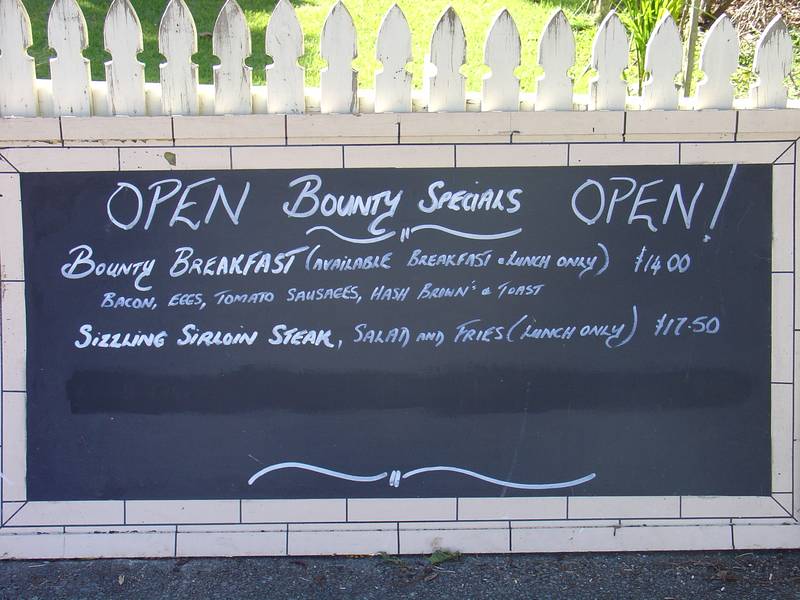 OPEN BOUNTY SPECIALS OPEN!
BOUNTY BREAKFAST (AVAILABLE BREAKFAST & LUNCH ONLY) $14 00
BACON, EGGS, TOMATO SAUSAGES, HASH BROWN'S & TOAST
SIZZLING SIRLOIN STEAK, SALAD AND FRIES (LUNCH ONLY) $17.50